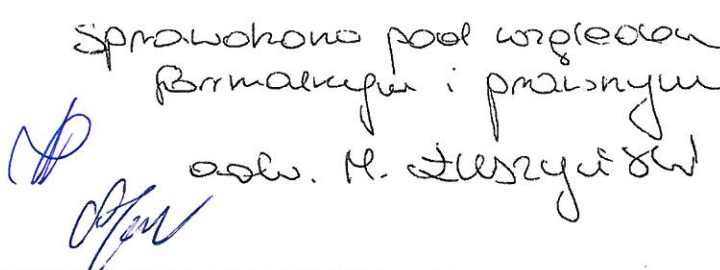 Sprawdzono pod względem
formalnym i prawnym
adw. M. Łuszczyński